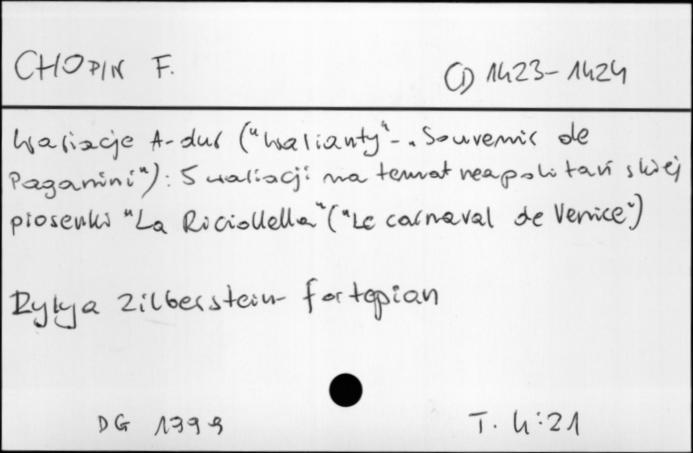 CHOPIN F.
CD 1423-1424
Wariacje A-dur ("Warianty" - "Souvenir de
Paganini"): 5 wariacji na temat neapolitańskiej
piosenki "La Riciollella" ("Le carnaval de Venice")
Lylya Zilberstein - fortepian
DG 1999
T. 4:21